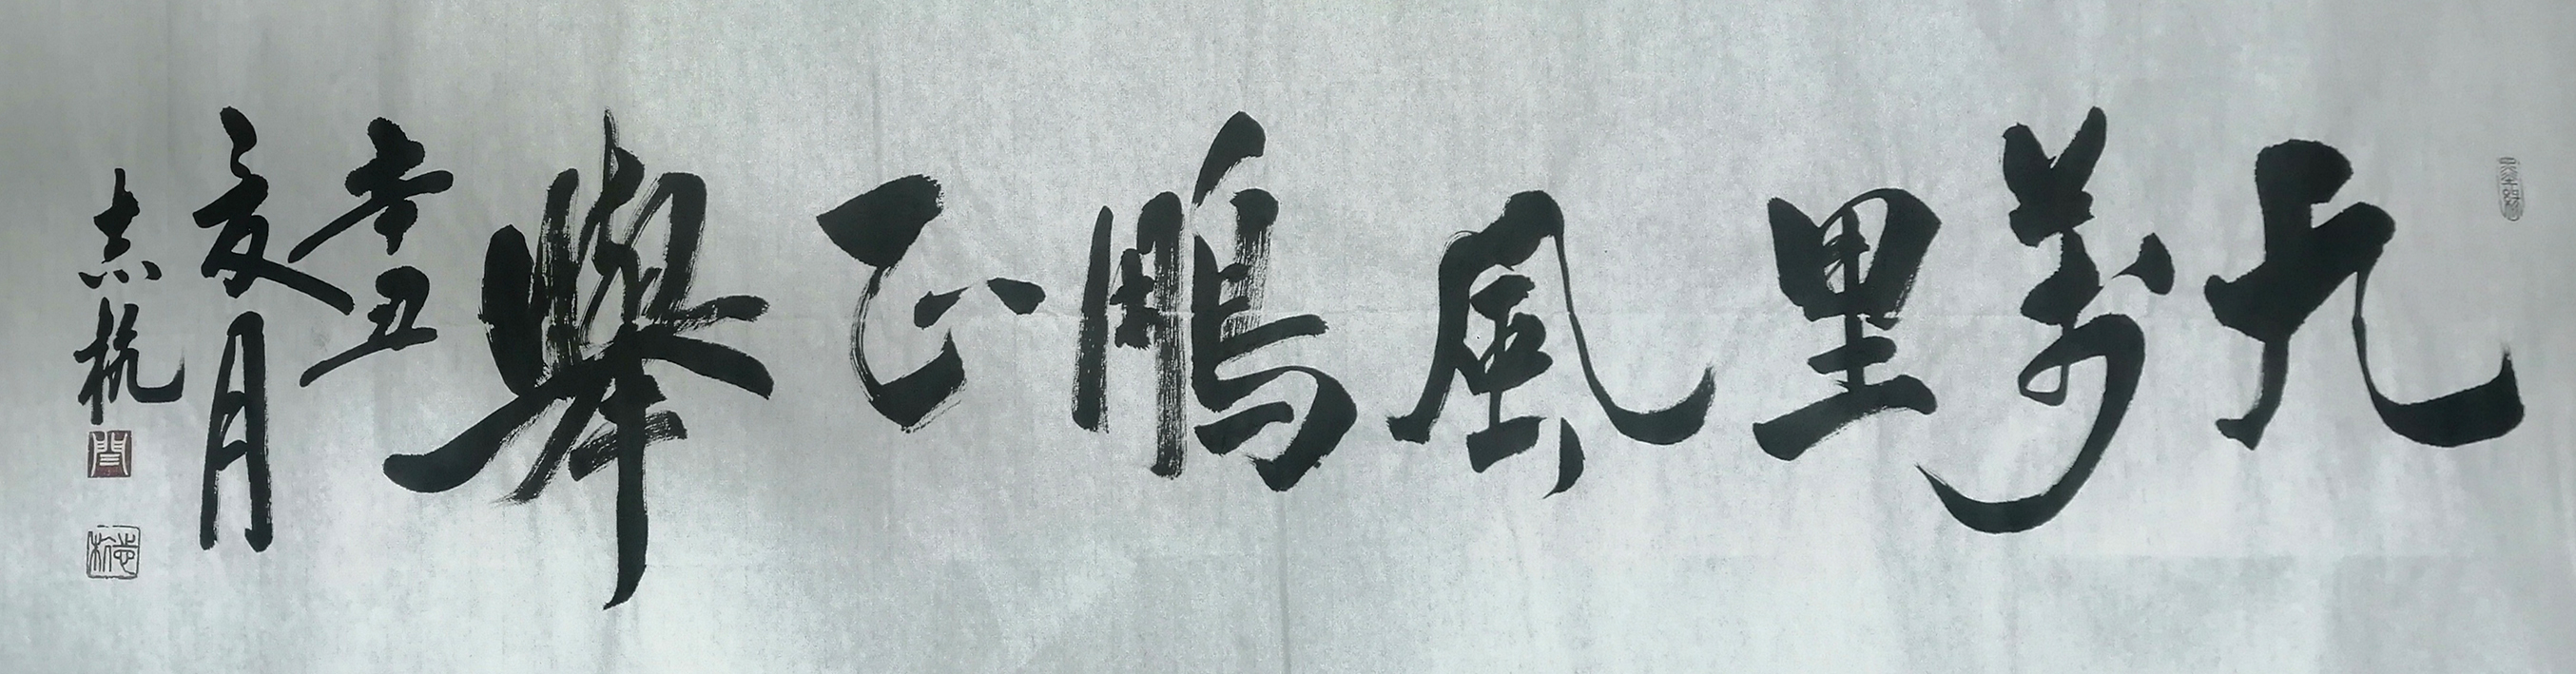 九萬里風鵬正舉
辛丑
夏月
志杭
閆
志杭